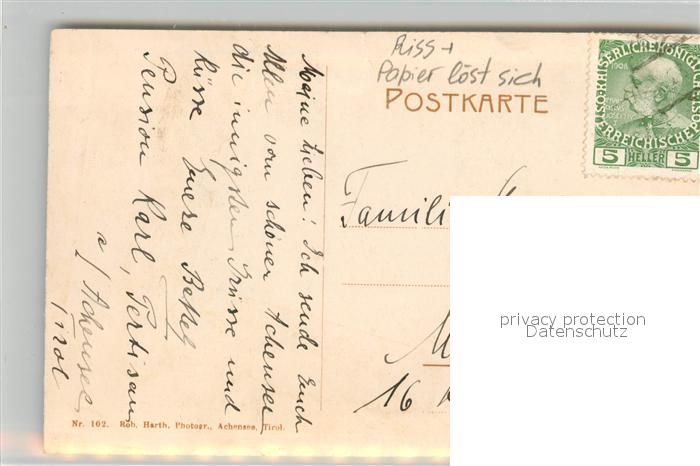 Riss +
Papier löst sich
POSTKARTE
1908
5 HELLER 5
Meine Lieben! Ich sende Euch
Allen vom schönen Achensee
die innigsten Grüsse und
Küsse Euere
Pension Karl, Pertisau
a/Achensee
Tirol
Famili
M
16
privacy protection
Datenschutz
Nr. 102. Rob. Harth, Photogr., Achensee, Tirol.